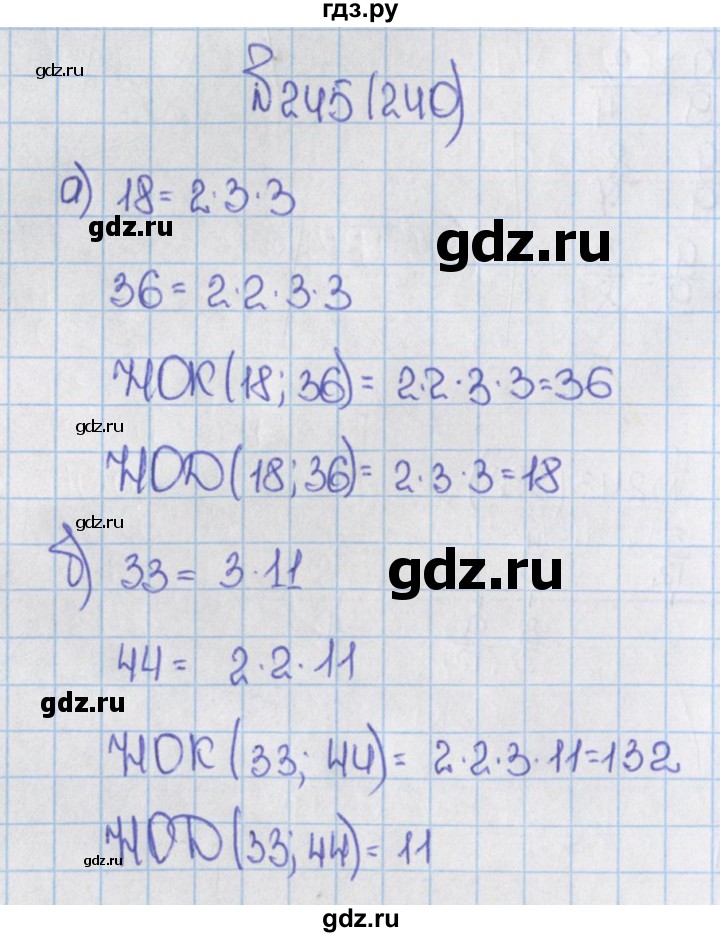 гдз.ру
gdz.ru
№245 (240)
а) 18 = 2·3·3
gdz.ru
gdz.ru
36 = 2·2·3·3
НОК(18; 36) = 2·2·3·3=36
gdz.ru
НОД(18; 36) = 2·3·3=18
gdz.ru
б) 33 = 3·11
gdz.ru
44 = 2·2·11
gdz.ru
НОК(33; 44) = 2·2·3·11=132
НОД(33; 44) = 11
gdz.ru
gdz.ru